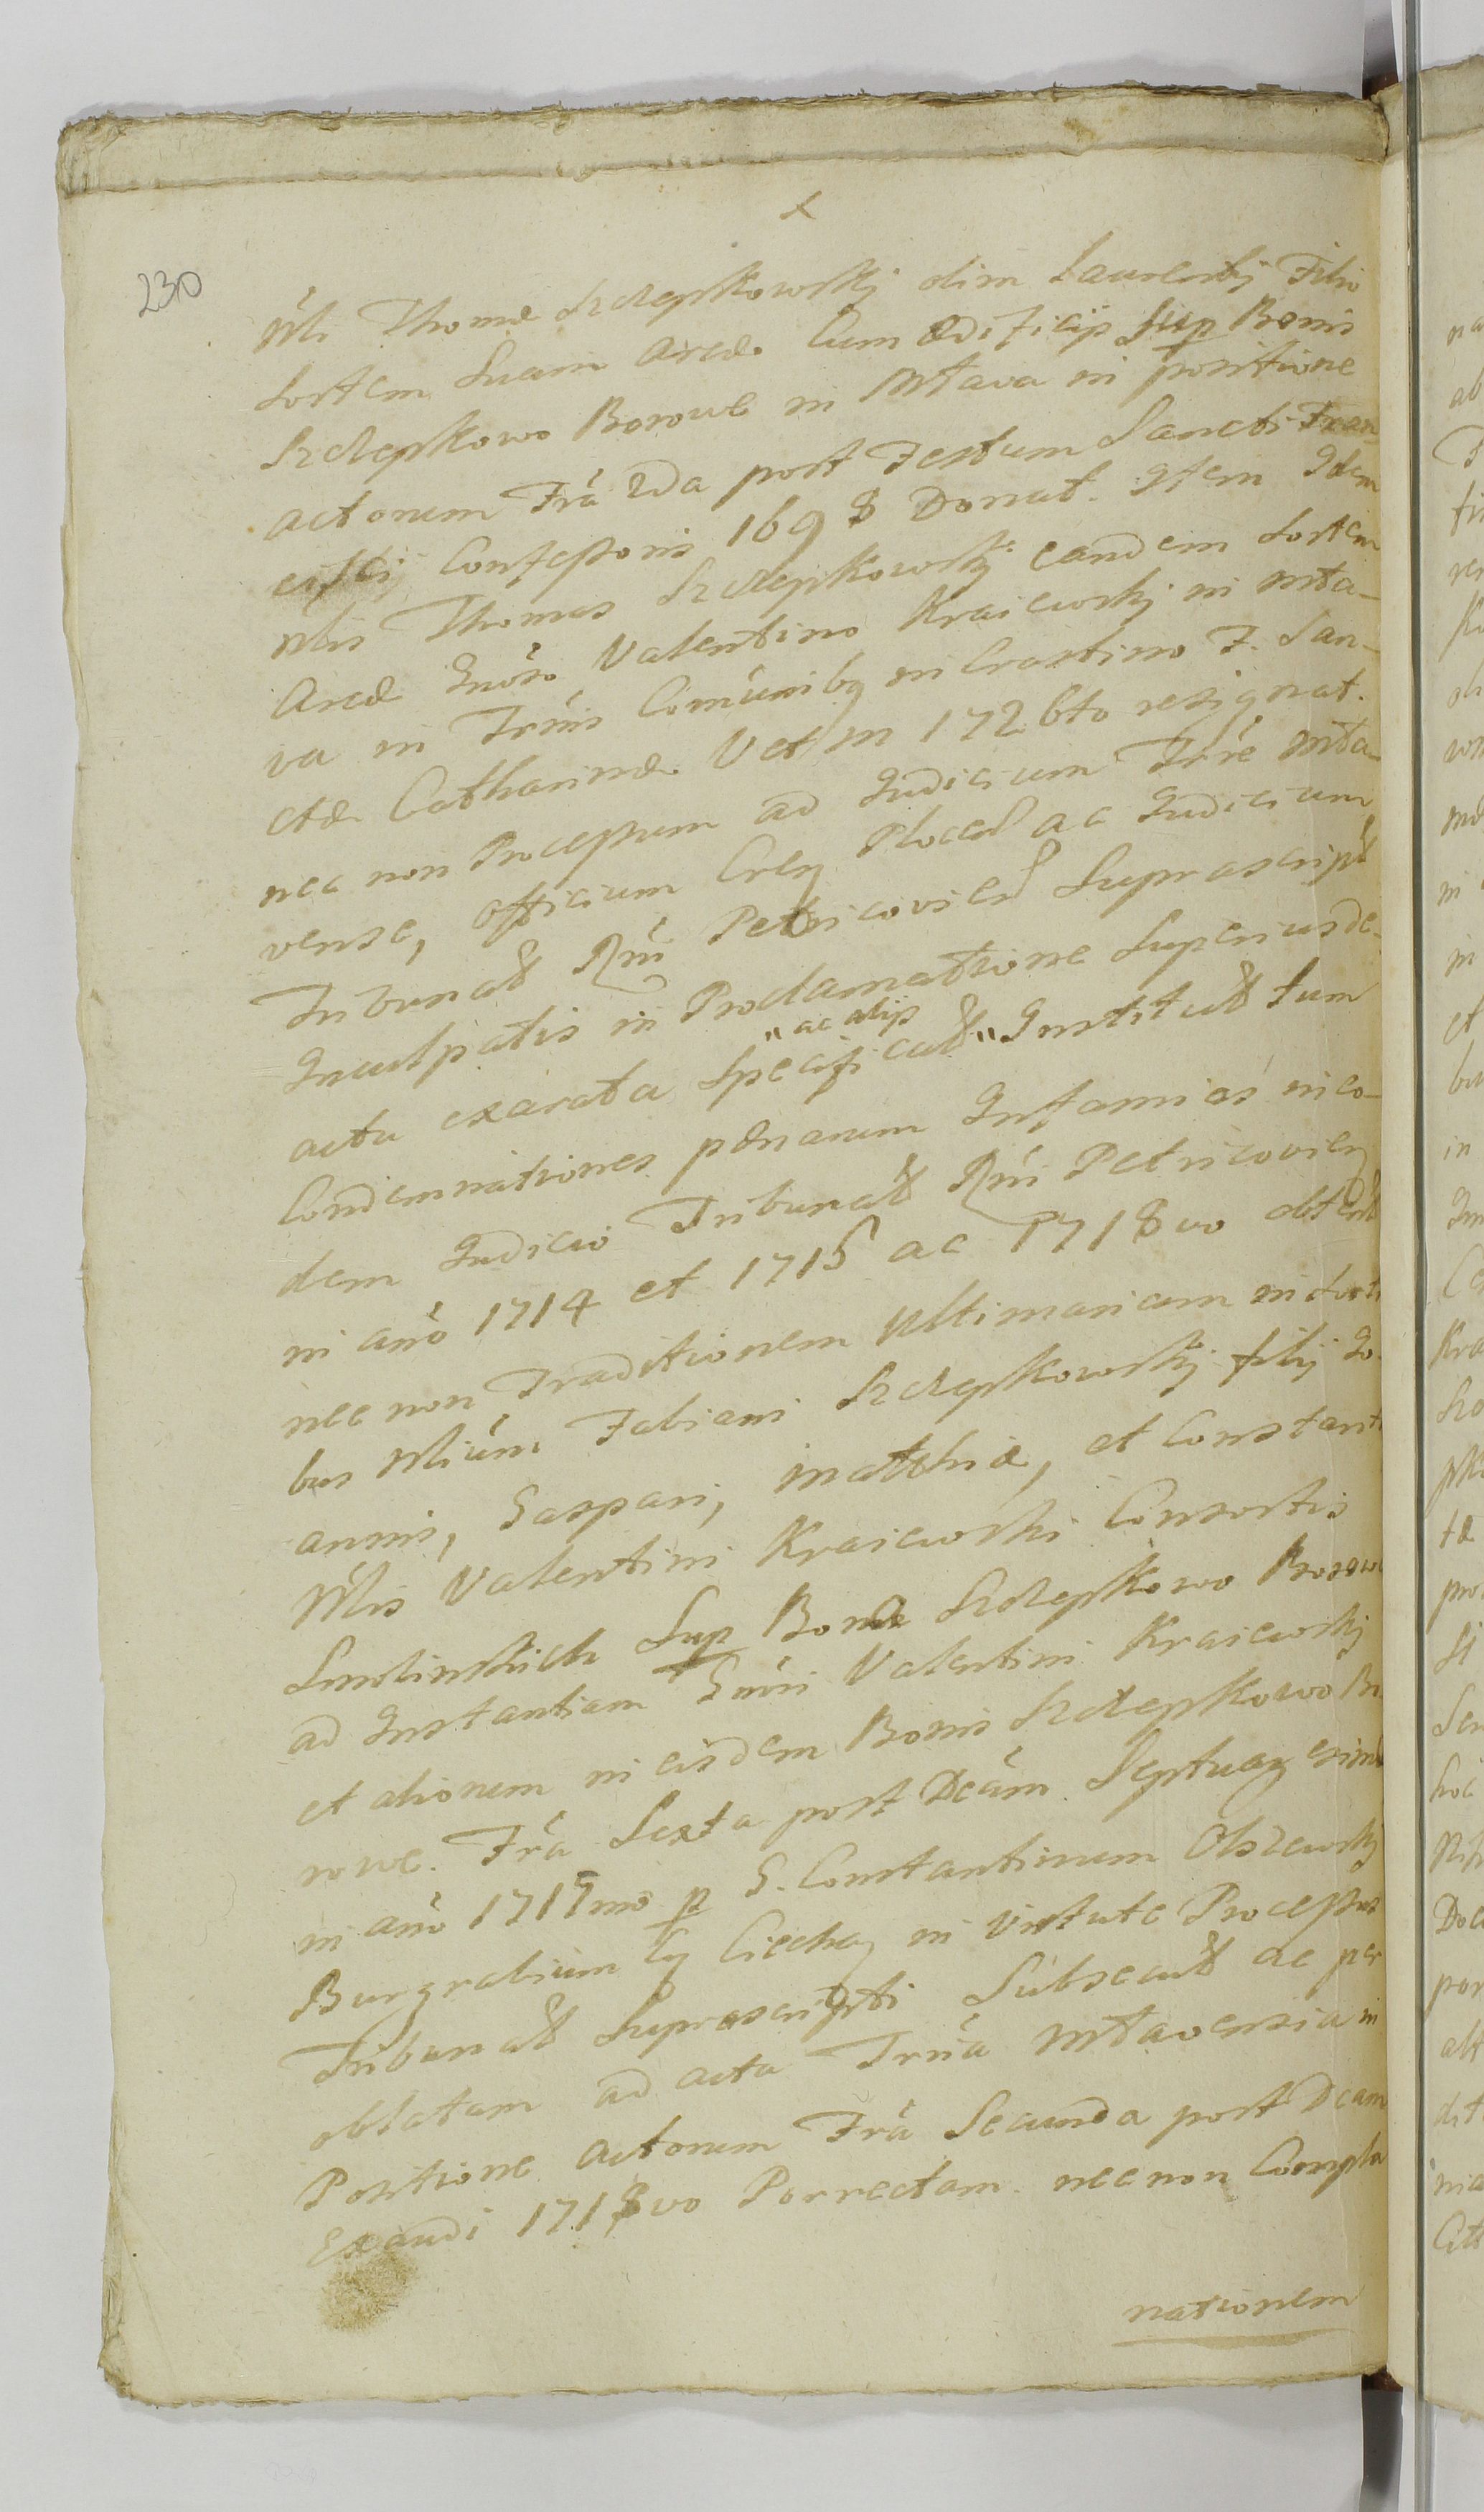 230
Nbli Thomæ Szczepkowskj olim Laurentij Filio
Sortem Suam Areæ Cum ædificijs Sup Bonis
Szczepkowo Borowe in Mlava in positione
actorum Frâ 2da post Festum Sancti Fran-
cisci Confessoris 1698 Donat. Item Idem
Nblis Thomas Szczepkowskj eandem Sortem
Areæ Gnôso Valentino Kraiewskj in Mla-
va in Trrnis Comûniby in Crastino F. San-
ctæ Catharinæ V et M 1726to resignat.
nec non Processum ad Judicium Trre Mla-
vense, officium Crey Plocen ac Judicium
Tribunal Rni Petricovien Suprascript
Inculpatis in Proclamatione Superius de-
actu exarata Specificat "ac alijs" Institut tum
Condemnationes pœnarum Infamiæ in eo-
dem Judicio Tribunal Rni Petricovien
in año 1714 et 1715 ac 1718vo obtent
nec non Traditionem Ultimariam in Sorti
bus Nbliûm Fabiani Szczepkowskj filij Jo-
annis, Gaspari, Mathiæ, et Constanti
Nblis Valentini Kraiewski Consortis
Smolinskich Sup Bona Szczepkowo Borowe
ad Instantiam Gnôsi Valentini Kraiewskj
et aliorum in eisdem Bonis Szczepkowo Bo-
rowe. Frâ Sexta post Dcâm Septuagesimæ
in año 1717mo p G. Constantinum Olszewskj
Burgrabium Cy Ciechay in Virtute Processus
Tribunal Suprascripti Subsecut ac per
oblatam ad acta Trrña Mlavensia in
Positione actorum Frâ Secunda post Dcam
Exaudi 1718vo Porrectam. nec non Compla
nationem